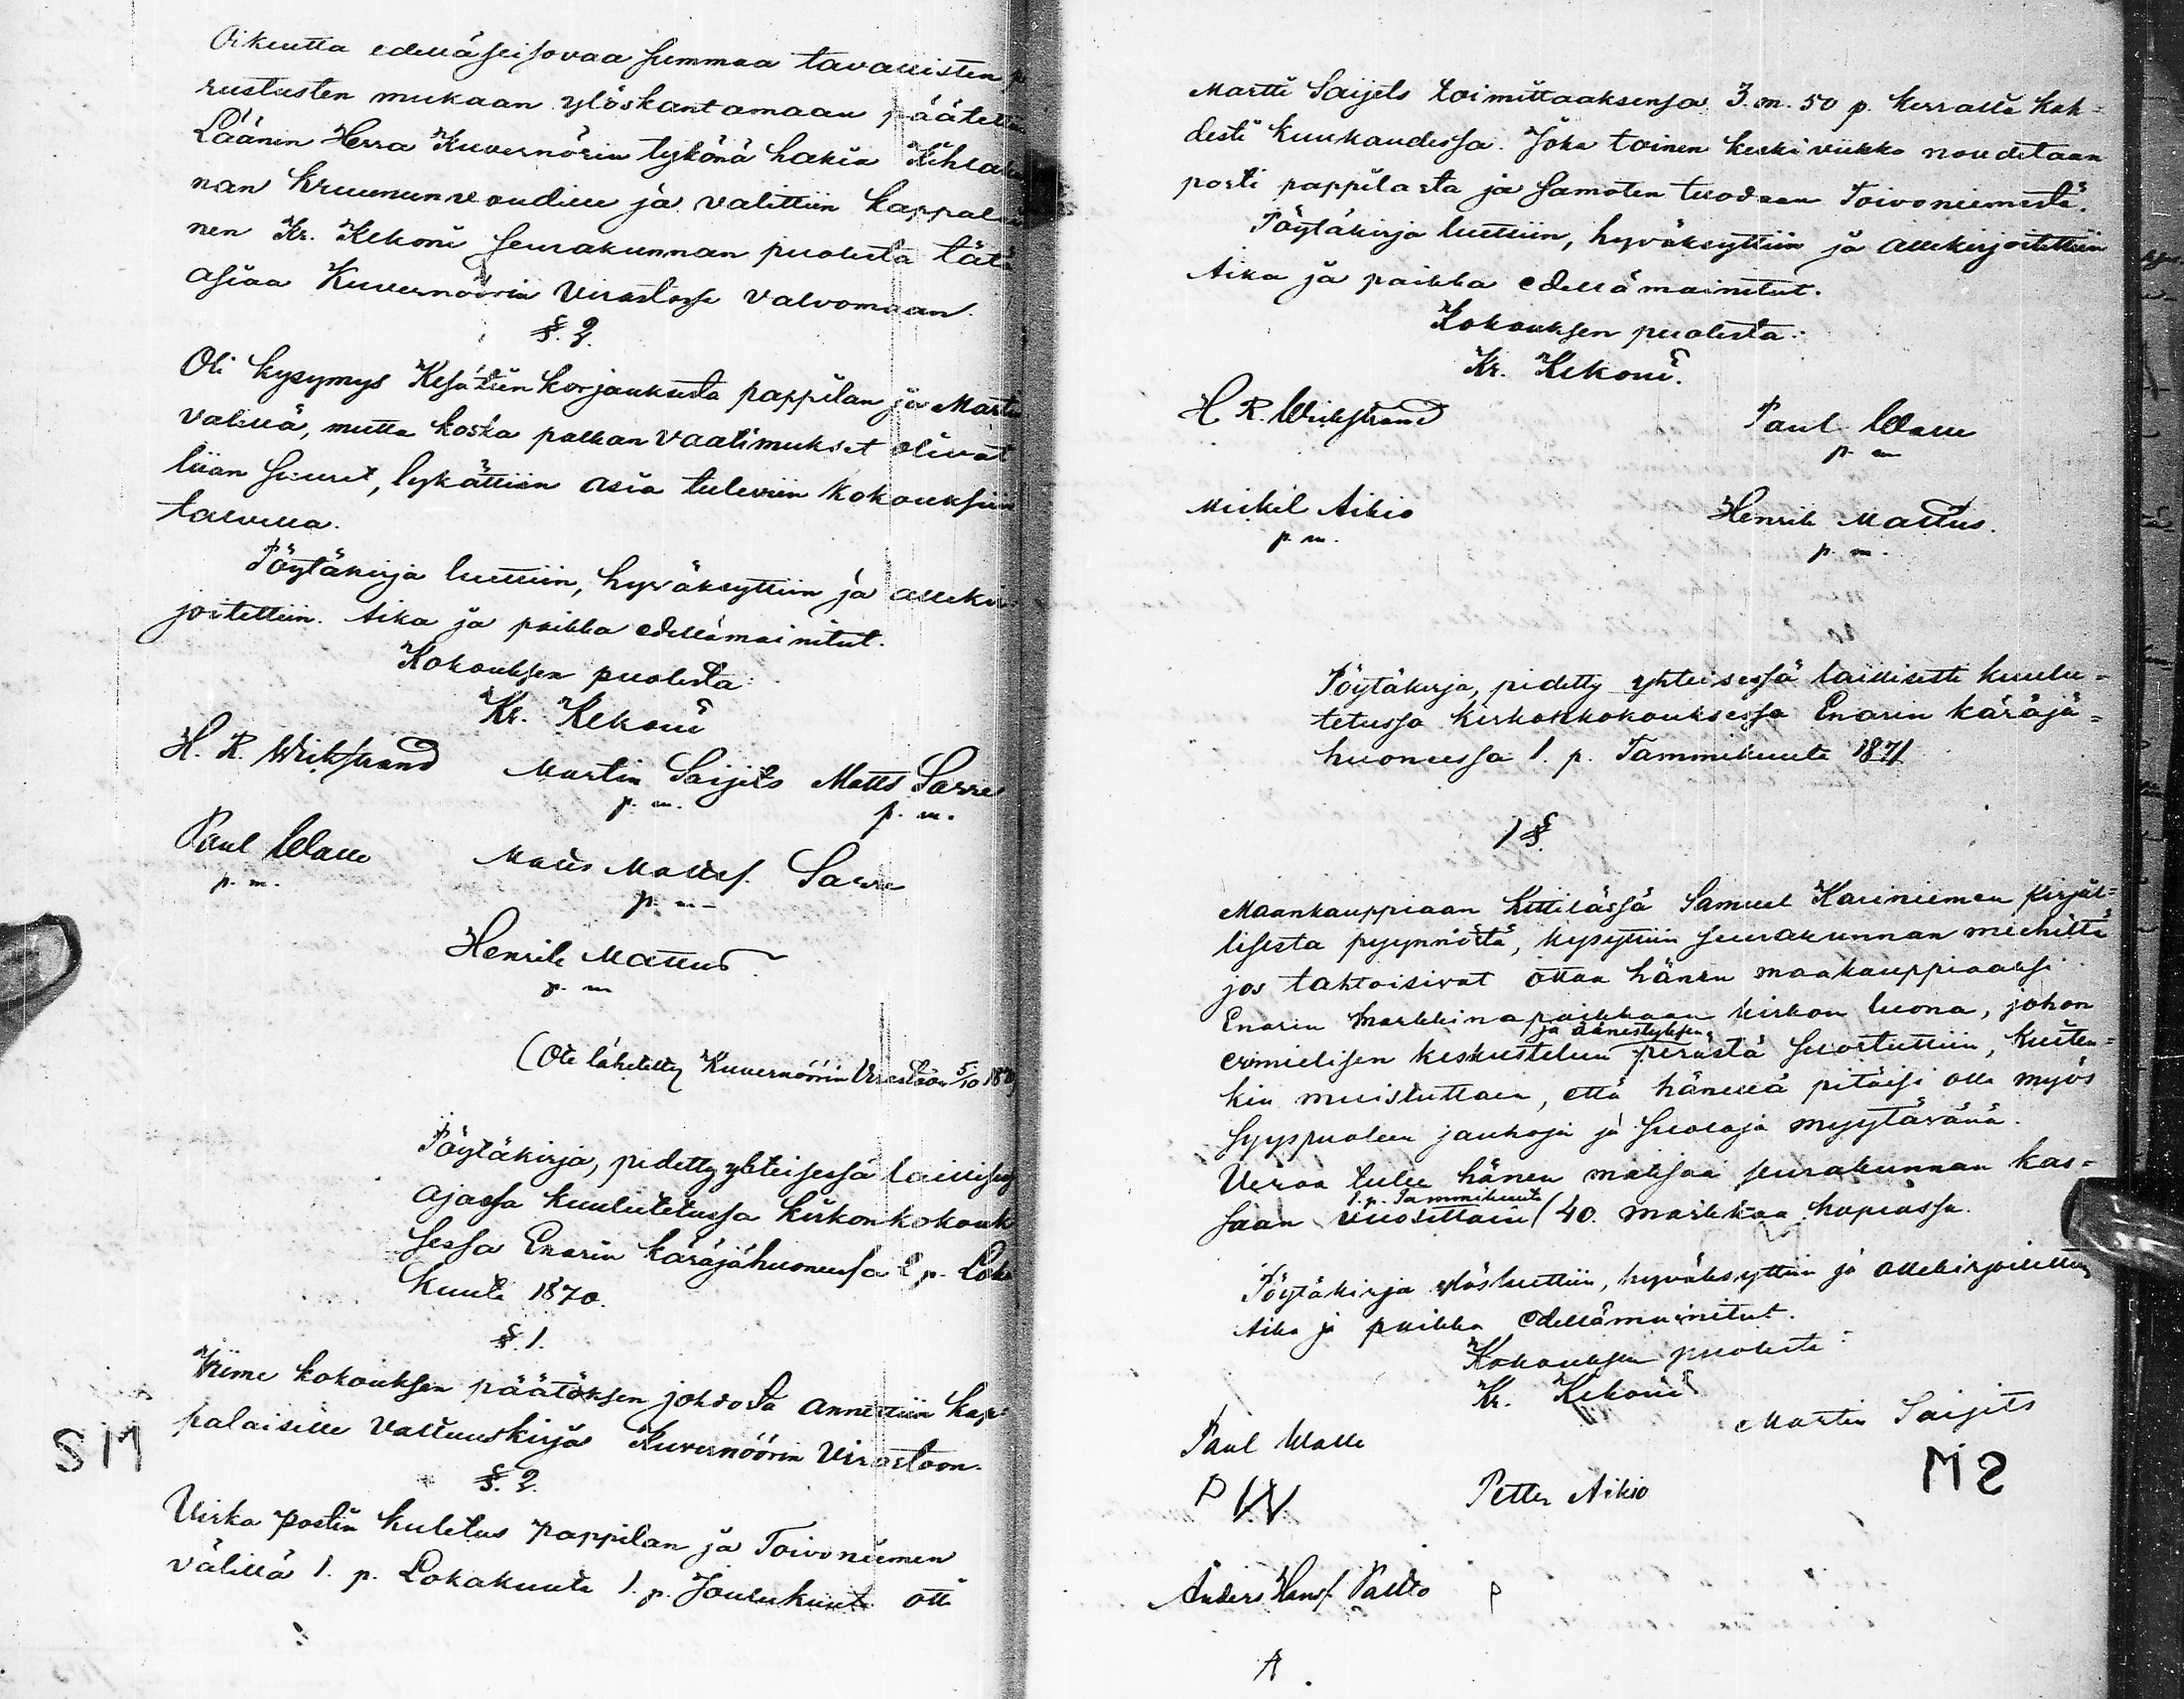 Oikeutta edelläseisovaa summaa tavallisten pe
rustusten mukaan ylöskantamaan päätettiin
Läänin Herra Kuvernörin tykönä hakia Kihlakun
nan kruununvoudille ja valittiin kappalai
nen Kr. Kekoni seurakunnan puolesta tätä
asiaa Kuvernöörin Virastossa valvomaan.
§. 2.
Oli kysymys Kesätien korjauksesta pappilan ja Martin
välillä, mutta koska palkan vaatimukset olivat
liian suuret, lykättiin asia tuleviin kokouksiin
talvella.
Pöytäkirja luettiin, hyväksyttiin ja allekir=
joitettiin. Aika ja paikka edellämainitut.
Kokouksen puolesta
Kr. Kekoni
H. R. Wickstrand Martin Saijets Matts Sarre
p. m. p. m.
Paul Walle Matts Mattss. Sarre
p. m. p. m
Henrik Mattus
p. m
(Ote lähetetty Kuvernöörin Virastoon 5/10 1870)
Pöytäkirja, pidetty yhteisessä laillisesti
ajassa kuulutetussa kirkonkokouk
sessa Enarin käräjähuoneessa 2 p. Loka
kuuta 1870.
§. 1.
Viime kokouksen päätöksen johdosta annettiin kap=
palaiselle valtuuskirja Kuvernöörin Virastoon.
§. 2.
Virka postin kuletus pappilan ja Toivoniemen
välillä 1. p. Lokakuuta 1. p. Joulukuuta otti
SM
Martti Saijets toimittaaksensa 3 m. 50 p. kerralta kah=
desti kuukaudessa. Joka toinen keskiviikko noudetaan
posti pappilasta ja samoten tuodaan Toivoniemestä.
Pöytäkirja luettiin, hyväksyttiin ja allekirjoitettiin
Aika ja paikka edellämainitut.
Kokouksen puolesta:
Kr. Kekoni.
H R. Wickstrand Paul Walle
p. m
Michel Aikio Henrik Mattus.
p. m. p. m.
Pöytäkirja, pidetty yhteisessä laillisesti kuulu=
tetussa kirkonkokouksessa Enarin käräjä=
huoneessa 1. p. Tammikuuta 1871
1 §.
Maankauppiaan Kittilässä Samuel Kariniemen kirjal=
lisesta pyynnöstä, kysyttiin seurakunnan miehiltä
jos tahtoisivat ottaa hänen maakauppiaaksi
Enarin markkinapaikkaan kirkon luona, johon
ja äänestyksen
erimielisen keskustelun perästä suostuttiin, kuiten=
kin muistuttaen, että hänellä pitäisi olla myös
syyspuolen jauhoja ja suoloja myytävänä.
Veroa tulee hänen maksaa seurakunnan kas=
1. p. Tammikuuta
saan vuosittain (40. markkaa hopiassa.
Pöytäkirja ylösluettiin, hyväksyttiin ja allekirjoitettiin
Aika ja paikka edellämainitut.
Kokouksen puolesta:
Kr. Kekoni
Martin Saijets
Paul Walle
P W Petter Aikio
P
Anders Hanss. Paltto
A.
MS